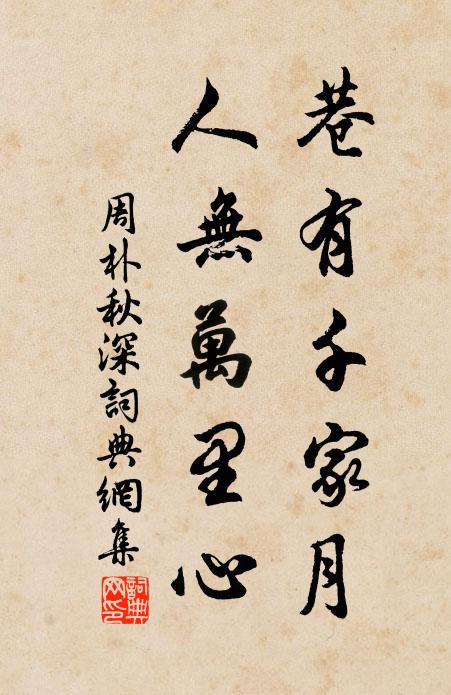 巷有千家月
人無萬里心
周朴秋深詞典網集
詞典网印